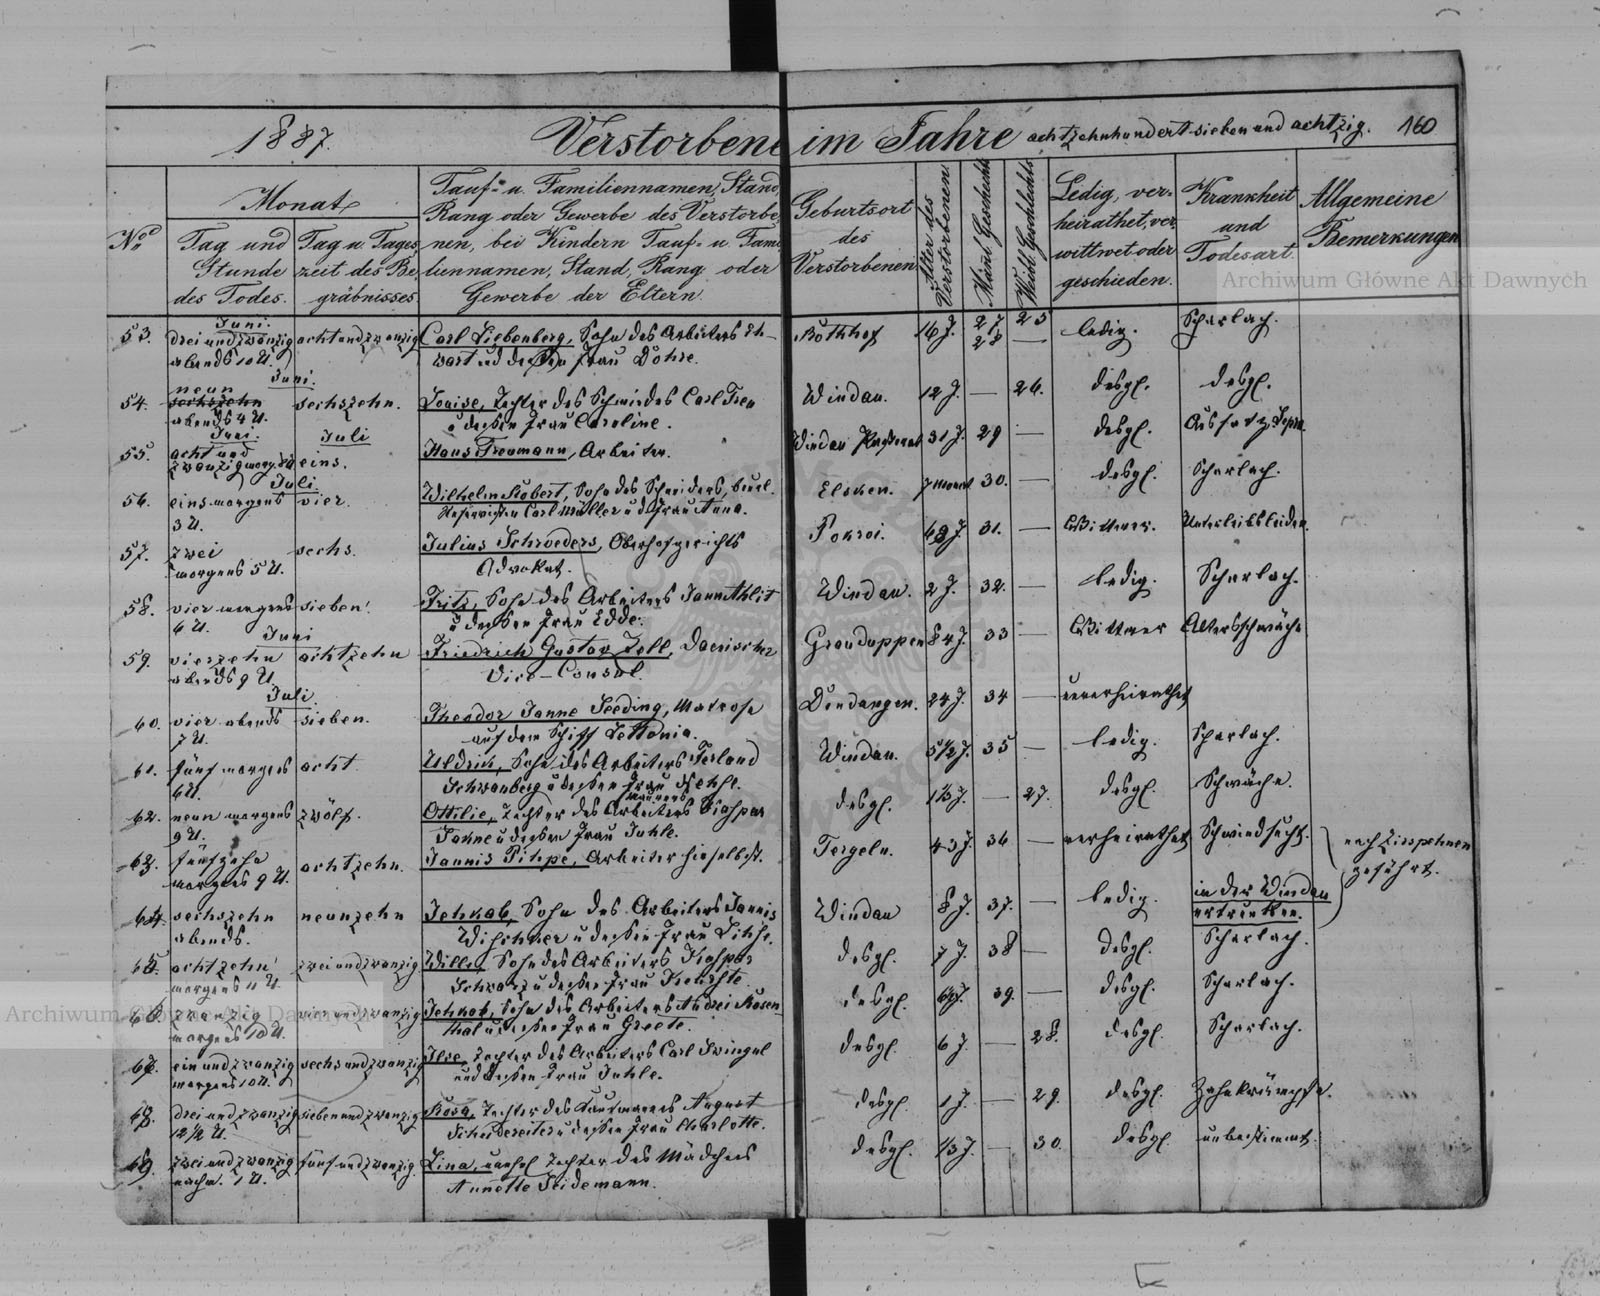 1887.
Verstorbene im Jahre achtzehnhundert sieben und achtzig. 160
No
Monat
Tag und Stunde des Todes.
Tag u. Tageszeit des Begräbnisses.
Tauf- u. Familiennamen, Stand,
Rang oder Gewerbe des Verstorbe
nen, bei Kindern Tauf- u. Fami
liennamen, Stand, Rang oder
Gewerbe der Eltern.
Geburtsort
des
Verstorbenen
Alter des Verstorbenen
Männl. Geschlechts
Weibl. Geschlechts
Ledig, ver-
heirathet, ver
wittwet oder
geschieden.
Krankheit
und
Todesart.
Allgemeine
Bemerkungen
Archiwum Główne Akt Dawnych
Juni.
53. drei und zwanzig achtundzwanzig Carl Liebenberg, Sohn des Arbeiters 16 J. 27 25 ledig. Scharlach.
abends 10 U. und dessen Frau Dohre. 28 —
neun Juni.
54. sechszehn sechszehn. Louise, Tochter des Schmiedes Carl Windau. 12 J. — 26. desgl. desgl.
abends 4 U. u dessen Frau Caroline.
Juni. Juli
55. acht und zwanzig morg. eins. Hans Freumann, Arbeiter. Windau 31 J. 29 — desgl. Aussatz, Lepra.
Juli.
56. eins morgens vier. Wilhelm Robert, Sohn des Schneiders, beurl. 7 Monat 30. — desgl. Scharlach.
3 U. Carl Müller u d Frau Anna.
57. zwei sechs. Julius Schroeders, Oberhofgerichts Pokroi. 63 J. 31. — Wittwer. Unterleibsleiden.
morgens 5 U. Advokat.
58. vier morgens sieben. Fritz, Sohn des Arbeiters Janne Windau. 2 J. 32. — ledig. Scharlach.
6 U. u dessen Frau Edde.
Juni
59. vierzehn achtzehn Friedrich Gustav Zell, Daenischer 84 J. 33 — Wittwer Altersschwäche
abends 9 U. Vice-Consul.
Juli
60. vier abends sieben. Theodor Janne Seeding, Matrose Dondangen. 24 J. 34 — unverheirathet
7 U. auf dem Schiff Lettonia.
61. fünf morgens acht. Uldrik, Sohn des Arbeiters Windau. 5 1/2 J. 35 — ledig. Scharlach.
6 U. Schwanberg u dessen Frau
62. neun morgens zwölf. Ottilie, Tochter des Arbeiters Kaspar desgl. 1 1/3 J. — 27. desgl. Schwäche.
9 U. u dessen Frau Juhle.
63. fünfzehn achtzehn. Jannis Pihpe, Arbeiter hieselbst. Tergeln. 43 J. 36 — verheirathet Schwindsucht.
morgens 9 U. geführt.
64. sechszehn neunzehn Jehkab, Sohn des Arbeiters Jannis Windau 8 J. 37. — ledig. in der Windau
abends. u dessen Frau Lihse. ertrunken.
65. achtzehn zweiundzwanzig Wille, Sohn des Arbeiters Kaspar desgl. 7 J. 38 — desgl. Scharlach.
morgens 11 U. Schwarz u dessen Frau
66. zwanzig vierundzwanzig Jehkab, Sohn des Arbeiters Andrei Rosen- desgl. 39. — desgl. Scharlach.
morgens 10 U. thal u dessen Frau Greete.
67. ein und zwanzig sechsundzwanzig Ilse, Tochter des Arbeiters Carl Swingul desgl. 6 J. — 28. desgl. Scharlach.
morgens 10 U. und dessen Frau Juhle.
68. drei und zwanzig siebenundzwanzig Rosa, Tochter des Kaufmannes August desgl. 1 J. — 29. desgl. Zahnkrämpfe.
12 1/2 U. u dessen Frau Charlotte.
69. zwei und zwanzig fünfundzwanzig. Lina, unehel. Tochter des Mädchens desgl. 1/3 J. — 30. desgl. unbestimmt.
nachm. 1 U. Annette Seidemann.
Archiwum Główne Akt Dawnych